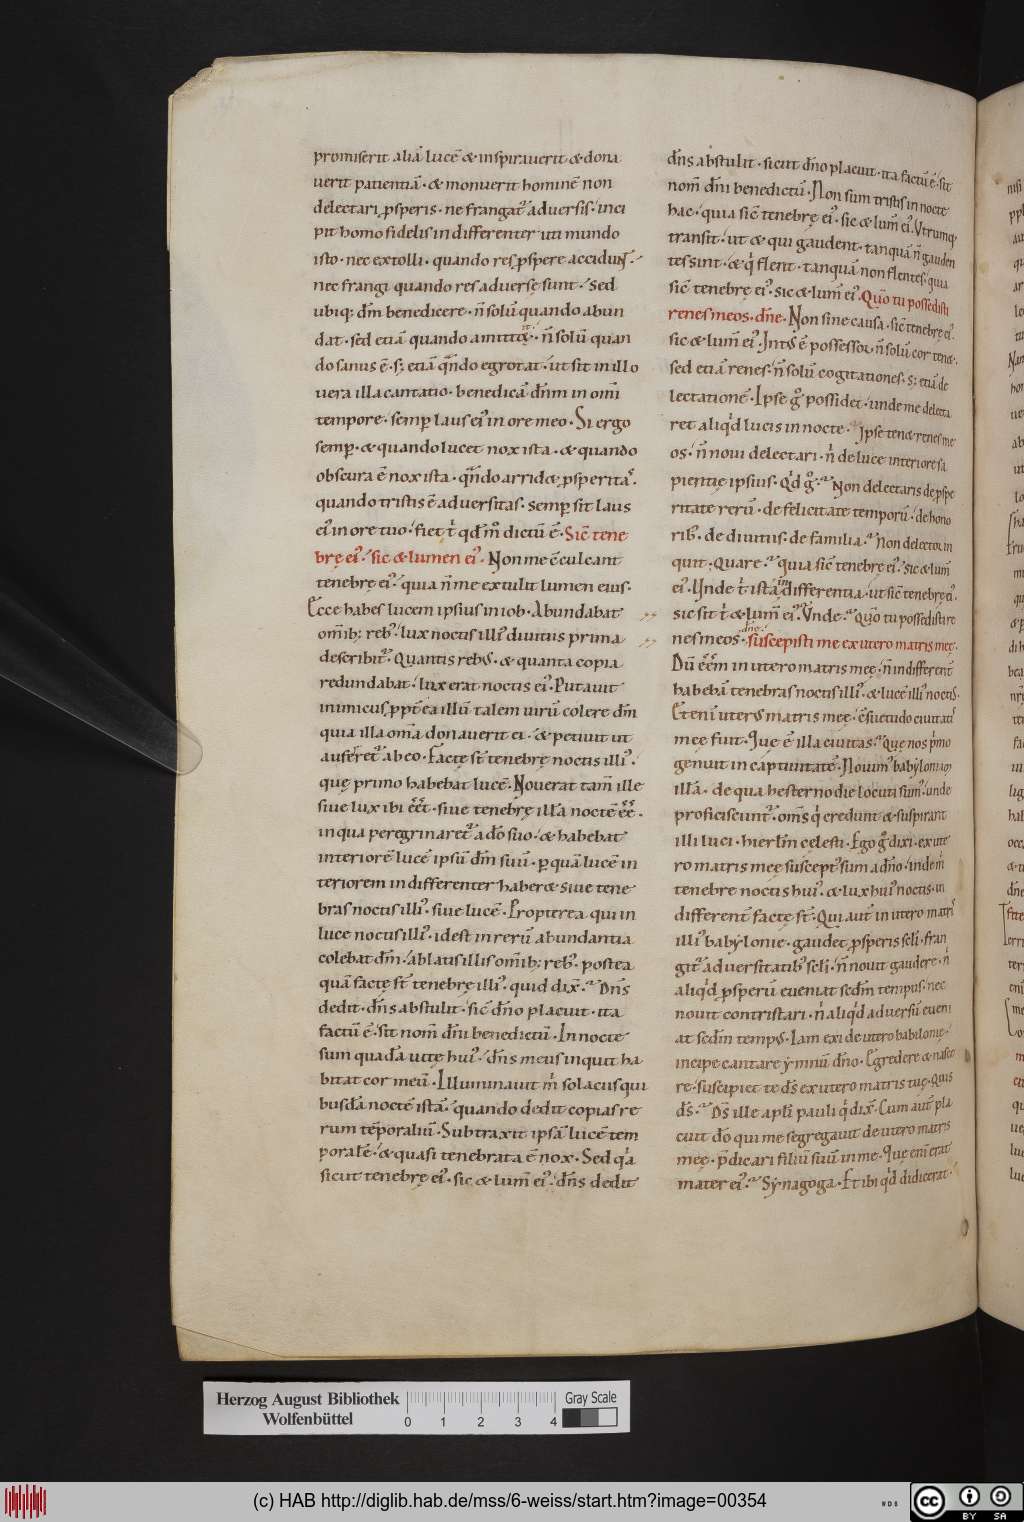 promiserit aliā lucē & inspirauerit & dona
uerit patientiā · & monuerit hominē non
delectari ꝓsperis · ne frangat᷑ aduersis · inci
pit homo fidelis indifferenter uti mundo
isto · nec extolli · quando res ꝓspere accidunt ·
nec frangi quando res aduersę sunt · Sed
ubiq; dm̄ benedicere · ñ solū quando abun
dat · sed etiā quando amittit · ñ solū quan
do sanus ē · s; etiā qn̄do egrotat · ut sit in illo
uera illa cantatio · benedicā dn̄m in om̄i
tempore · semp̱ laus eiꝰ in ore meo · Si ergo
semp̱ · & quando lucet nox ista · & quando
obscura ē nox ista · qn̄do arrid& ꝓsperitas ·
quando tristis ē aduersitas · semp̱ sit laus
eiꝰ in ore tuo · fiet t̄ qd m̊ dictū ē · Sic̄ tene
brę eiꝰ · sic & lumen eiꝰ · Non me c̄culcant
tenebrę eiꝰ · quia ñ me extulit lumen eius ·
Ecce habes lucem ipsius in iob · Abundabat
om̄ib; rebꝰ · lux noctis illiꝰ diuitiis prima
describit᷑ · Quantis rebꝰ · & quanta copia
redundabat · lux erat noctis eiꝰ · Putauit
inimicus ꝓpt̄ ea illū talem uirū colere dm̄
quia illa om̄a donauerit ei · & petiuit ut
auferret᷑ ab eo · Factę st̄ tenebrę noctis illiꝰ ·
quę primo habebat lucē · Nouerat tam̄ ille
siue lux ibi ēēt · siue tenebrę illā noctē ēē ·
in qua peregrinaret᷑ a dō suo · & habebat
interiorē lucē ipsū dm̄ suū · ꝑ quā lucē in
teriorem indifferenter haber& siue tene
bras noctis illiꝰ · siue lucē · Propterea qui in
luce noctis illiꝰ · id est in rerū abundantia
colebat dm̄ · ablatis illis om̄ib; rebꝰ · postea
quā factę st̄ tenebrę illiꝰ · quid dix̄ · Dn̄s
dedit · dn̄s abstulit · sic̄ dn̄o placuit · ita
factū ē · sit nom̄ dn̄i benedictū · In nocte
sum quadā uitę huiꝰ · dn̄s meus inquit ha
bitat cor meū · Illuminauit m̄ solacus qui
busdā noctē istā · quando dedit copias re
rum tēporaliū · Subtraxit ipsā lucē tem
poralē · & quasi tenebrata ē nox · Sed qa
sicut tenebrę eiꝰ · sic & lum̄ eiꝰ · dn̄s dedit
dn̄s abstulit · sicut dn̄o placuit · ita factū ē · sit
nom̄ dn̄i benedictū · Non sum tristis in nocte
hac · quia sic̄ tenebrę eiꝰ · sic & lum̄ eiꝰ · Vtrumq;
transit · ut & qui gaudent · tanquā ñ gauden
tes sint · & q̄ flent · tanquā non flentes · quia
sic̄ tenebrę eiꝰ · sic & lum̄ eiꝰ · Qm̄o tu possedisti
renes meos · dn̄e · Non sine causa · sic̄ tenebrę eiꝰ ·
sic & lum̄ eiꝰ · Intꝰ ē possessor · ñ solū cor ten& ·
sed etiā renes · ñ solū cogitationes · s; etiā de
lectationē · Ipse g̊ possidet · unde me delecta
ret aliqd lucis in nocte · Ipse ten& renes me
os · ñ noui delectari · ñ de luce interiore sa
pientię ipsius · Qd g̊ · Non delectaris de ꝓspe
ritate rerū · de felicitate temporū · de hono
ribꝰ · de diuitiis · de familia · Non delector in
quit · Quare · quia sic̄ tenebrę eiꝰ · sic & lum̄
eiꝰ · Unde t̄ ista indifferentia · ut sic̄ tenebrę eiꝰ ·
sic sit t̄ & lum̄ eiꝰ · Vnde · Qm̄o tu possedisti re
nes meos dn̄e · suscepisti me ex utero matris meę ·
Dū ēēm in utero matris meę · ñ indifferent̄
habebā tenebras noctis illiꝰ · & lucē illiꝰ noctis ·
Eteni uterꝰ matris meę · c̄suetudo ciuitatis
meę fuit · Quę ē illa ciuitas · Quę nos pͥmo
genuit in captiuitatē · Nouimꝰ babyloniam
illā · de qua hesterno die locuti sumꝰ · unde
proficiscunt᷑ · om̄s q̄ credunt & suspirant
illi luci · hierlm̄ celesti · Ego g̊ dixi · ex ute
ro matris meę susceptꝰ sum a dn̄o · inde m̄
tenebre noctis huiꝰ · & lux huiꝰ noctis · in
different̄ factę st̄ · Qui aut̄ in utero matris
illiꝰ babylonię · gaudet ꝓsperis scl̄i · fran
git᷑ aduersitatibꝰ scl̄i · ñ nouit gaudere · ñ
aliqd ꝓsperū eueniat scdm̄ tempus · nec
nouit contristari · ñ aliqd aduersū eueni
at scdm̄ tempꝰ · Iam exi de utero babilonię ·
incipe cantare ymnū dn̄o · Egredere & nasce
re · suscipiet te ds̄ ex utero matris tuę · Quis
ds̄ · Ds̄ ille apl̄i pauli q̄ dix̄ · Cum aut̄ pla
cuit dō qui me segregauit de utero matris
meę · p̄dicari filiū suū in me · Quę eni erat
mater eiꝰ · Synagoga · Et ibi qd didicerat ·
Herzog August Bibliothek
Wolfenbüttel
0 1 2 3 4
Gray Scale
(c) HAB http://diglib.hab.de/mss/6-weiss/start.htm?image=00354
cc BY SA